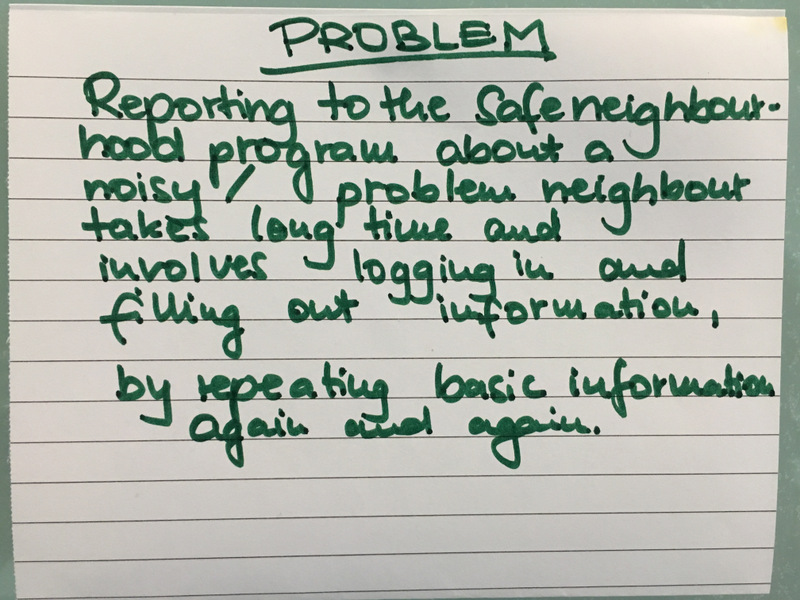 PROBLEM
Reporting to the Safe neighbour-
hood program about a
noisy / problem neighbour
takes long time and
involves logging in and
filling out information,
by repeating basic information
again and again.